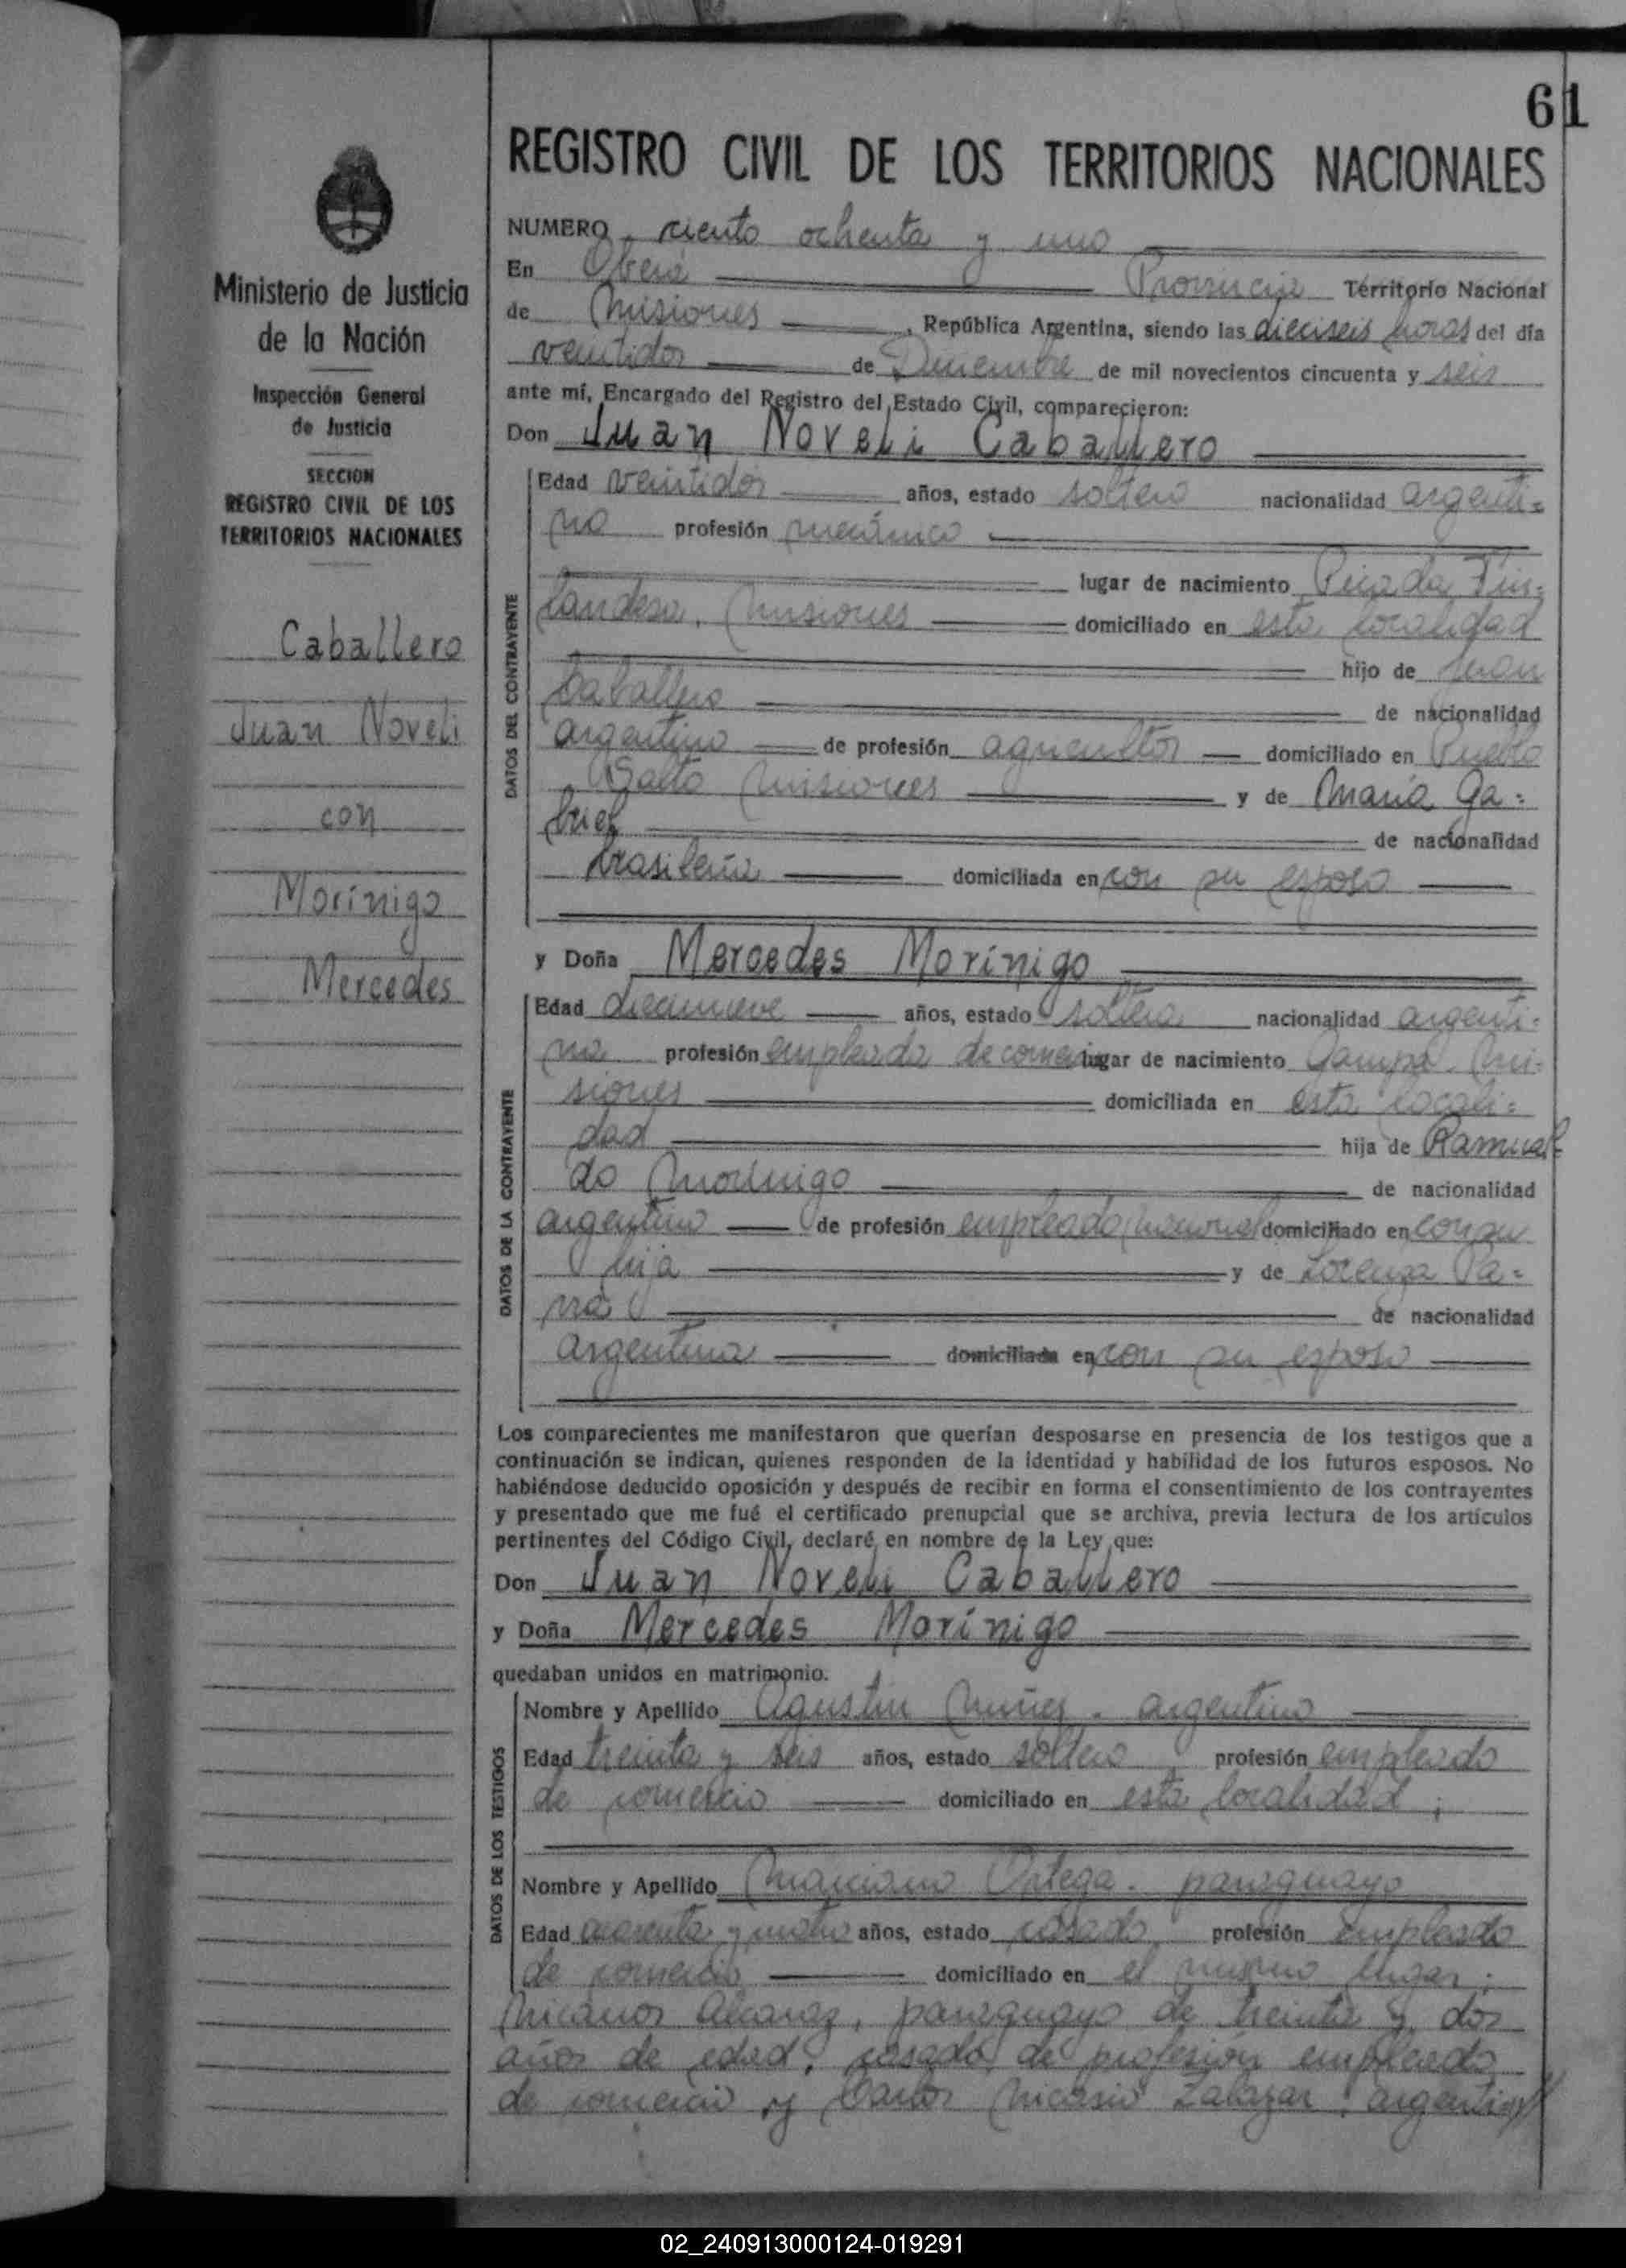 61
REGISTRO CIVIL DE LOS TERRITORIOS NACIONALES
Ministerio de Justicia
de la Nación
Inspección General
de Justicia
SECCION
REGISTRO CIVIL DE LOS
TERRITORIOS NACIONALES
Caballero
Juan Noveli
con
Morínigo
Mercedes
NUMERO ciento ochenta y uno
En Oberá Provincia Territorio Nacional
de Misiones, República Argentina, siendo las dieciseis horas del día
veintidos de Diciembre de mil novecientos cincuenta y seis
ante mí, Encargado del Registro del Estado Civil, comparecieron:
Don Juan Noveli Caballero
DATOS DEL CONTRAYENTE
Edad veintidós años, estado soltero nacionalidad argenti=
no profesión mecánico
lugar de nacimiento Picada Fin=
landesa, Misiones domiciliado en esta localidad
hijo de Juan
Caballero de nacionalidad
argentino de profesión agricultor domiciliado en Pueblo
Salto Misiones y de María Ga=
briel de nacionalidad
brasileña domiciliada en con su esposo
y Doña Mercedes Morínigo
DATOS DE LA CONTRAYENTE
Edad diecinueve años, estado soltera nacionalidad argenti=
na profesión empleada de comercio lugar de nacimiento Mi=
siones domiciliada en esta locali=
dad hija de
do Morinigo de nacionalidad
argentino de profesión empleado domiciliado en con su
hija y de Lorenza
de nacionalidad
argentina domiciliada en con su esposo
Los comparecientes me manifestaron que querían desposarse en presencia de los testigos que a
continuación se indican, quienes responden de la identidad y habilidad de los futuros esposos. No
habiéndose deducido oposición y después de recibir en forma el consentimiento de los contrayentes
y presentado que me fué el certificado prenupcial que se archiva, previa lectura de los artículos
pertinentes del Código Civil, declaré en nombre de la Ley que:
Don Juan Noveli Caballero
y Doña Mercedes Morínigo
quedaban unidos en matrimonio.
DATOS DE LOS TESTIGOS
Nombre y Apellido Agustin Muñez - argentino
Edad treinta y seis años, estado soltero profesión empleado
de comercio domiciliado en esta localidad;
Nombre y Apellido Marciano Ortega - paraguayo
Edad cuarenta y cuatro años, estado casado profesión empleado
de comercio domiciliado en el mismo lugar;
Nicanor Alcaraz, paraguayo de treinta y dos
años de edad, casado, de profesión empleado
de comercio y Carlos Nicasio Zalazar, argentino
02_240913000124-019291